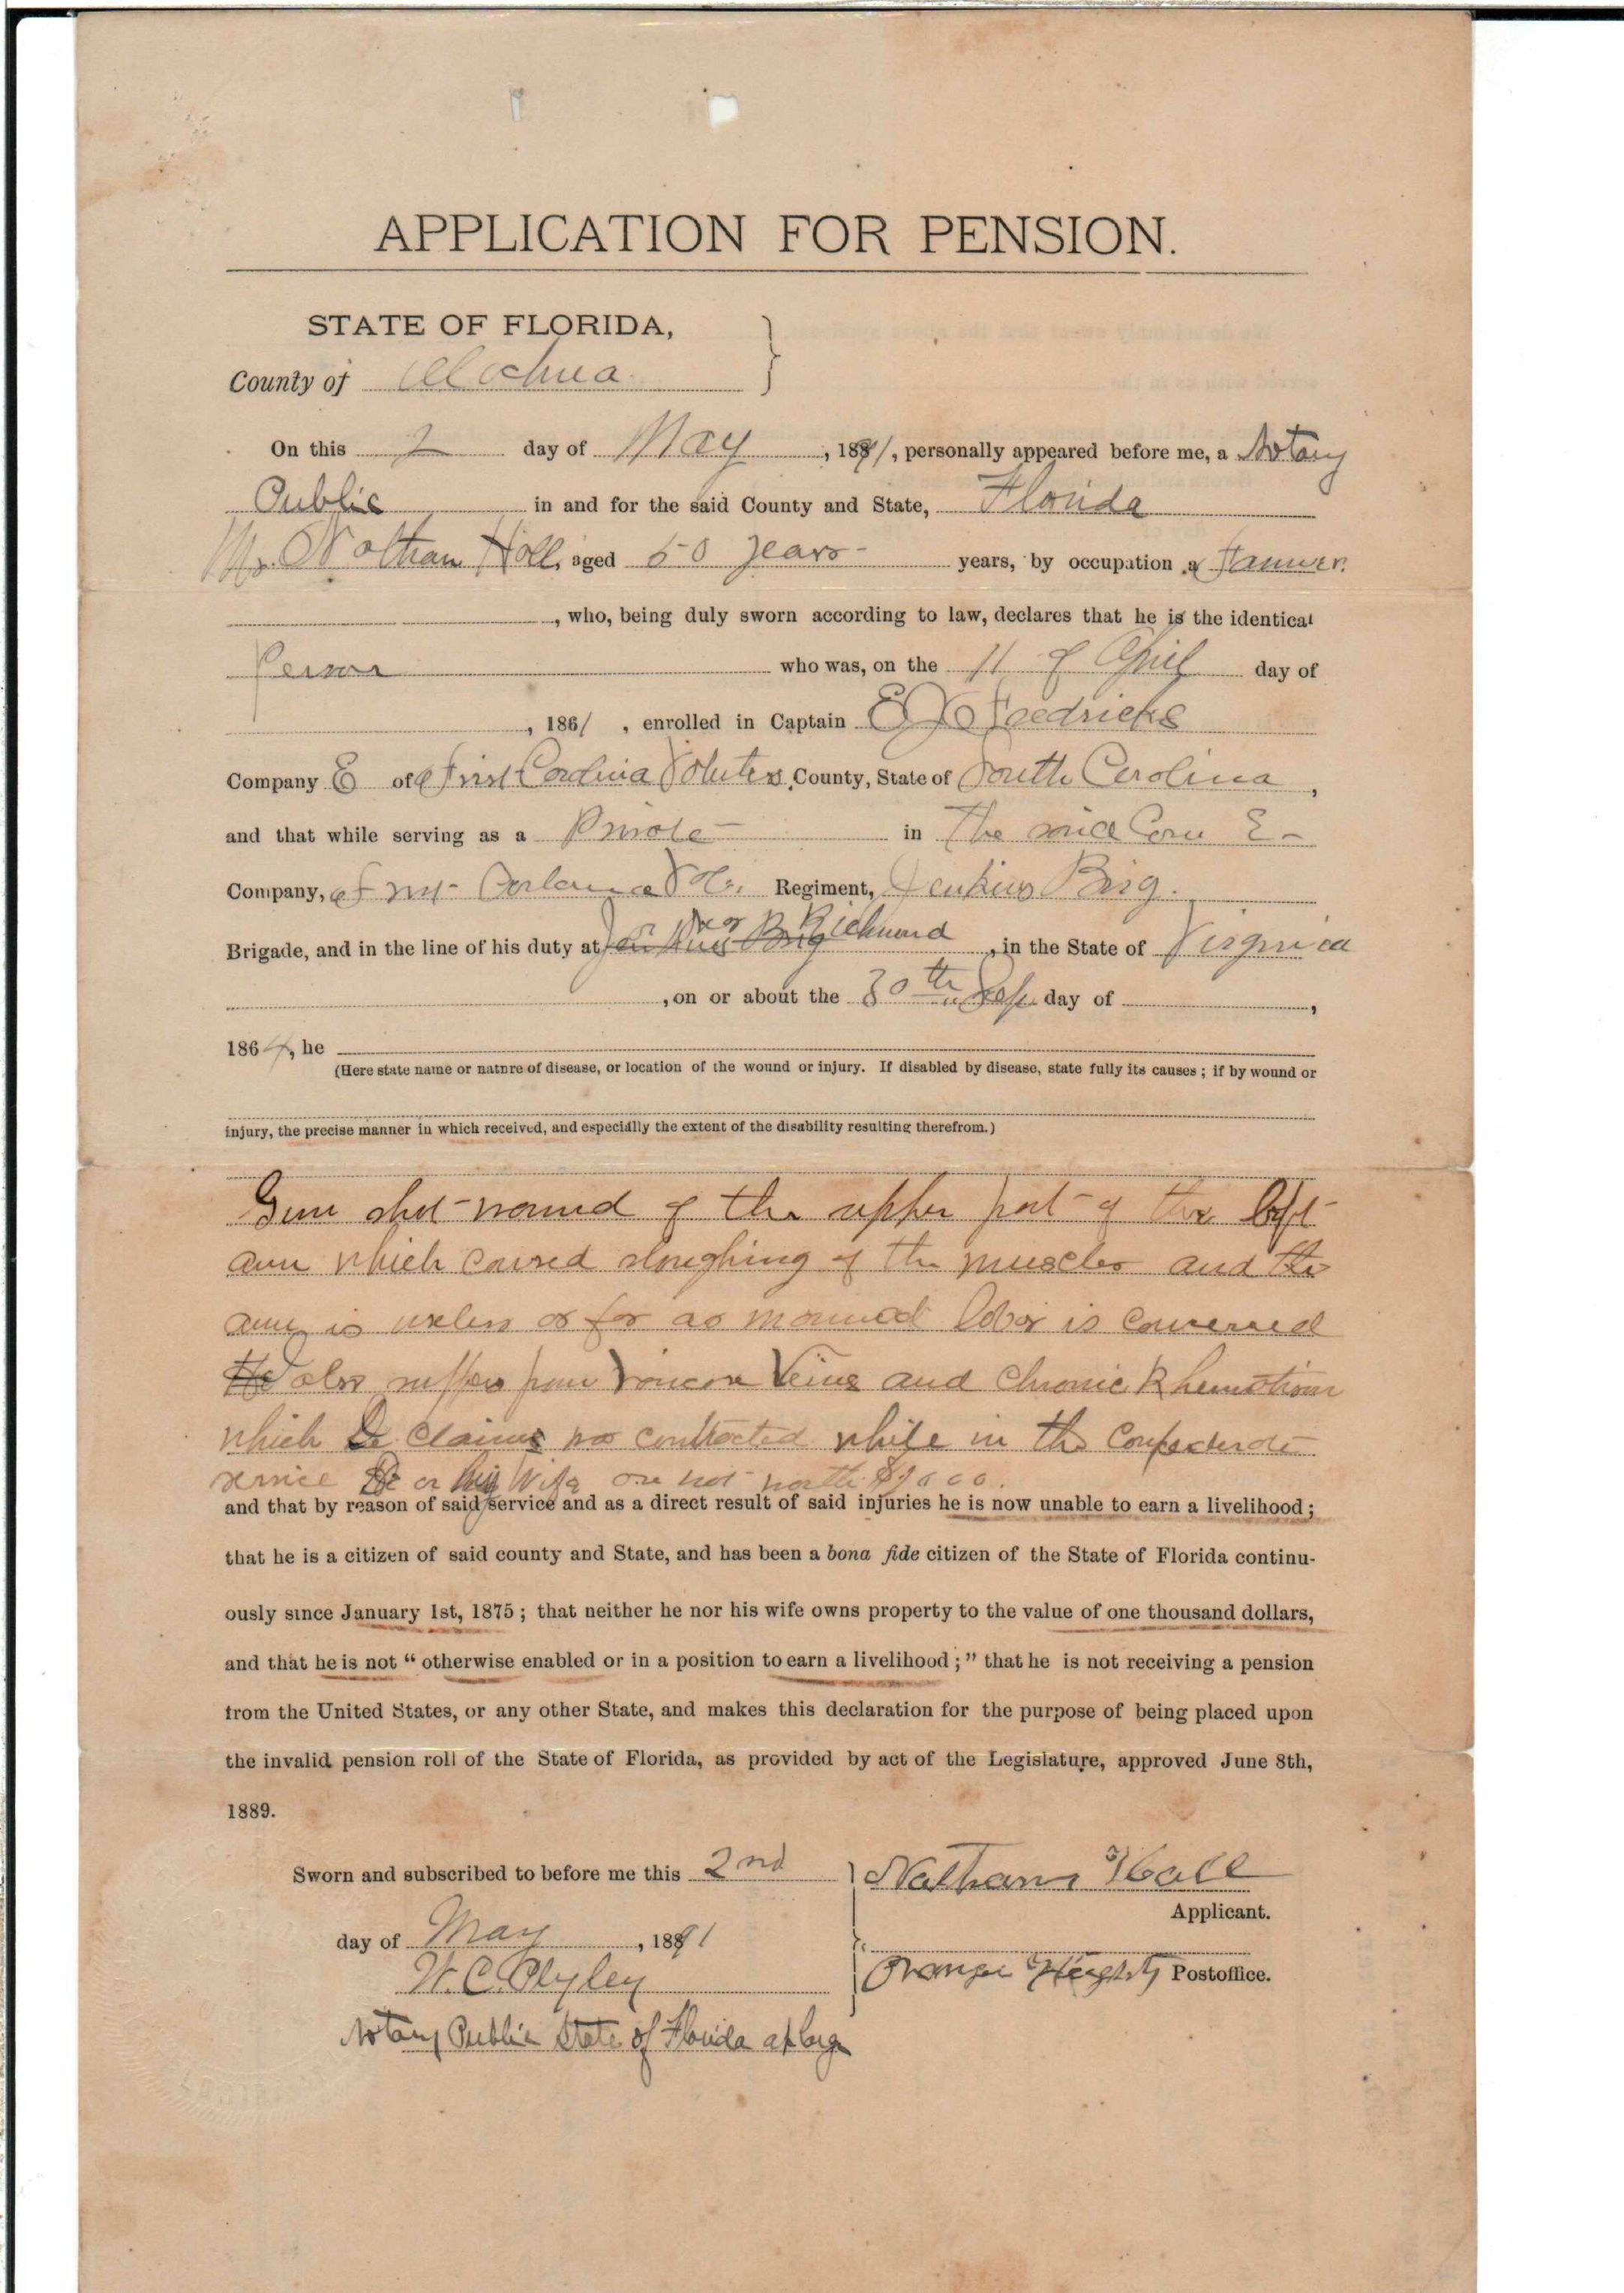 APPLICATION FOR PENSION.
STATE OF FLORIDA,
County of Alachua
On this 2 day of May, 1891, personally appeared before me, a Notary
Public in and for the said County and State, Florida
Mr. Nathan Hall, aged 50 years years, by occupation a Farmer.
, who, being duly sworn according to law, declares that he is the identical
Person who was, on the 11 of April day of
, 1861, enrolled in Captain
Company E of First Volnters, County, State of South Carolina,
and that while serving as a Private in The said Com E
Company, of Regiment, Jenkins Brig.
Brigade, and in the line of his duty at Jenkins Brig near Richmond, in the State of Virginia
, on or about the 30th Sep day of ,
1864, he
(Here state name or nature of disease, or location of the wound or injury. If disabled by disease, state fully its causes; if by wound or
injury, the precise manner in which received, and especially the extent of the disability resulting therefrom.)
Gun shot wound of the upper part of the left
arm which caused sloughing of the muscles and the
arm is useless as far as manual labor is concerned
He also suffers from Veins and Chronic Rhemutism
which he claims was contracted while in the Confederate
service He or his Wife are not worth $1000.
and that by reason of said service and as a direct result of said injuries he is now unable to earn a livelihood;
that he is a citizen of said county and State, and has been a bona fide citizen of the State of Florida continu-
ously since January 1st, 1875; that neither he nor his wife owns property to the value of one thousand dollars,
and that he is not "otherwise enabled or in a position to earn a livelihood;" that he is not receiving a pension
from the United States, or any other State, and makes this declaration for the purpose of being placed upon
the invalid pension roll of the State of Florida, as provided by act of the Legislature, approved June 8th,
1889.
Sworn and subscribed to before me this 2nd
day of May, 1891
W. C.
Notary Public State of Florida at large
Nathan Hall
Applicant.
Orange Heights Postoffice.